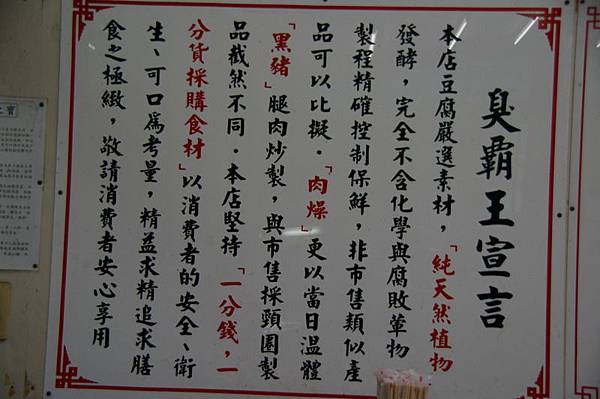 臭霸王宣言
本店豆腐嚴選素材，「純天然植物
發酵，完全不含化學與腐敗葷物
製程精確控制保鮮，非市售類似產
品可以比擬．「肉燥」更以當日溫體
「黑豬」腿肉炒製，與市售採頸圈製
品截然不同．本店堅持「一分錢，一
分貨採購食材」以消費者的安全、衛
生、可口為考量，精益求精追求膳
食之極緻，敬請消費者安心享用